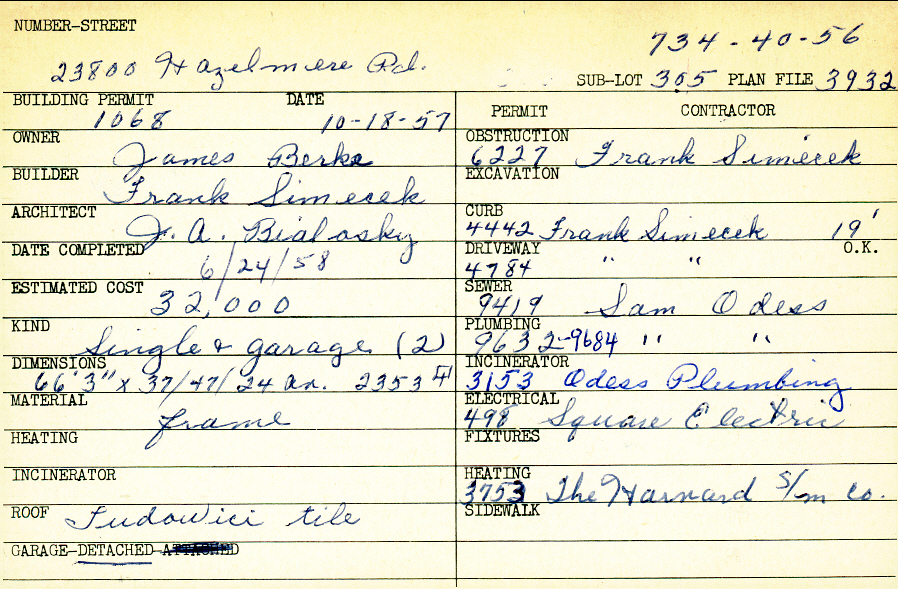 NUMBER-STREET
734-40-56
23800 Hazelmere Rd.
SUB-LOT 305 PLAN FILE 3932
BUILDING PERMIT DATE
1068 10-18-57
OWNER
James Berke
BUILDER
Frank Simecek
ARCHITECT
J. A. Bialosky
DATE COMPLETED
6/24/58
ESTIMATED COST
32,000
KIND
Single & garage (2)
DIMENSIONS
66'3" x 37/47/24 an. 2353
MATERIAL
frame
HEATING
INCINERATOR
ROOF Ludowici tile
GARAGE-DETACHED-ATTACHED
PERMIT CONTRACTOR
OBSTRUCTION
6227 Frank Simecek
EXCAVATION
CURB
4442 Frank Simecek 19'
DRIVEWAY O.K.
4784 " "
SEWER
9419 Sam Odess
PLUMBING
9632-9684 " "
INCINERATOR
3153 Odess Plumbing
ELECTRICAL
498 Square Electric
FIXTURES
HEATING
3753 The Harvard S/m Co.
SIDEWALK